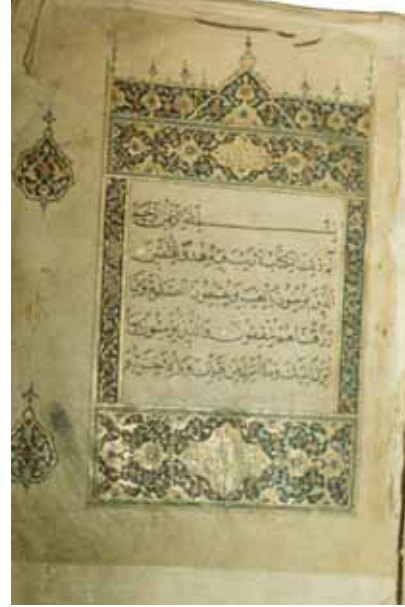 بسم الله الرحمن الرحيم
الم ذلك الكتاب لا ريب فيه هدى للمتقين
الذين يؤمنون بالغيب ويقيمون الصلوة ومما
رزقناهم ينفقون والذين يؤمنون بما
انزل اليك وما انزل من قبلك وبالاخرة هم